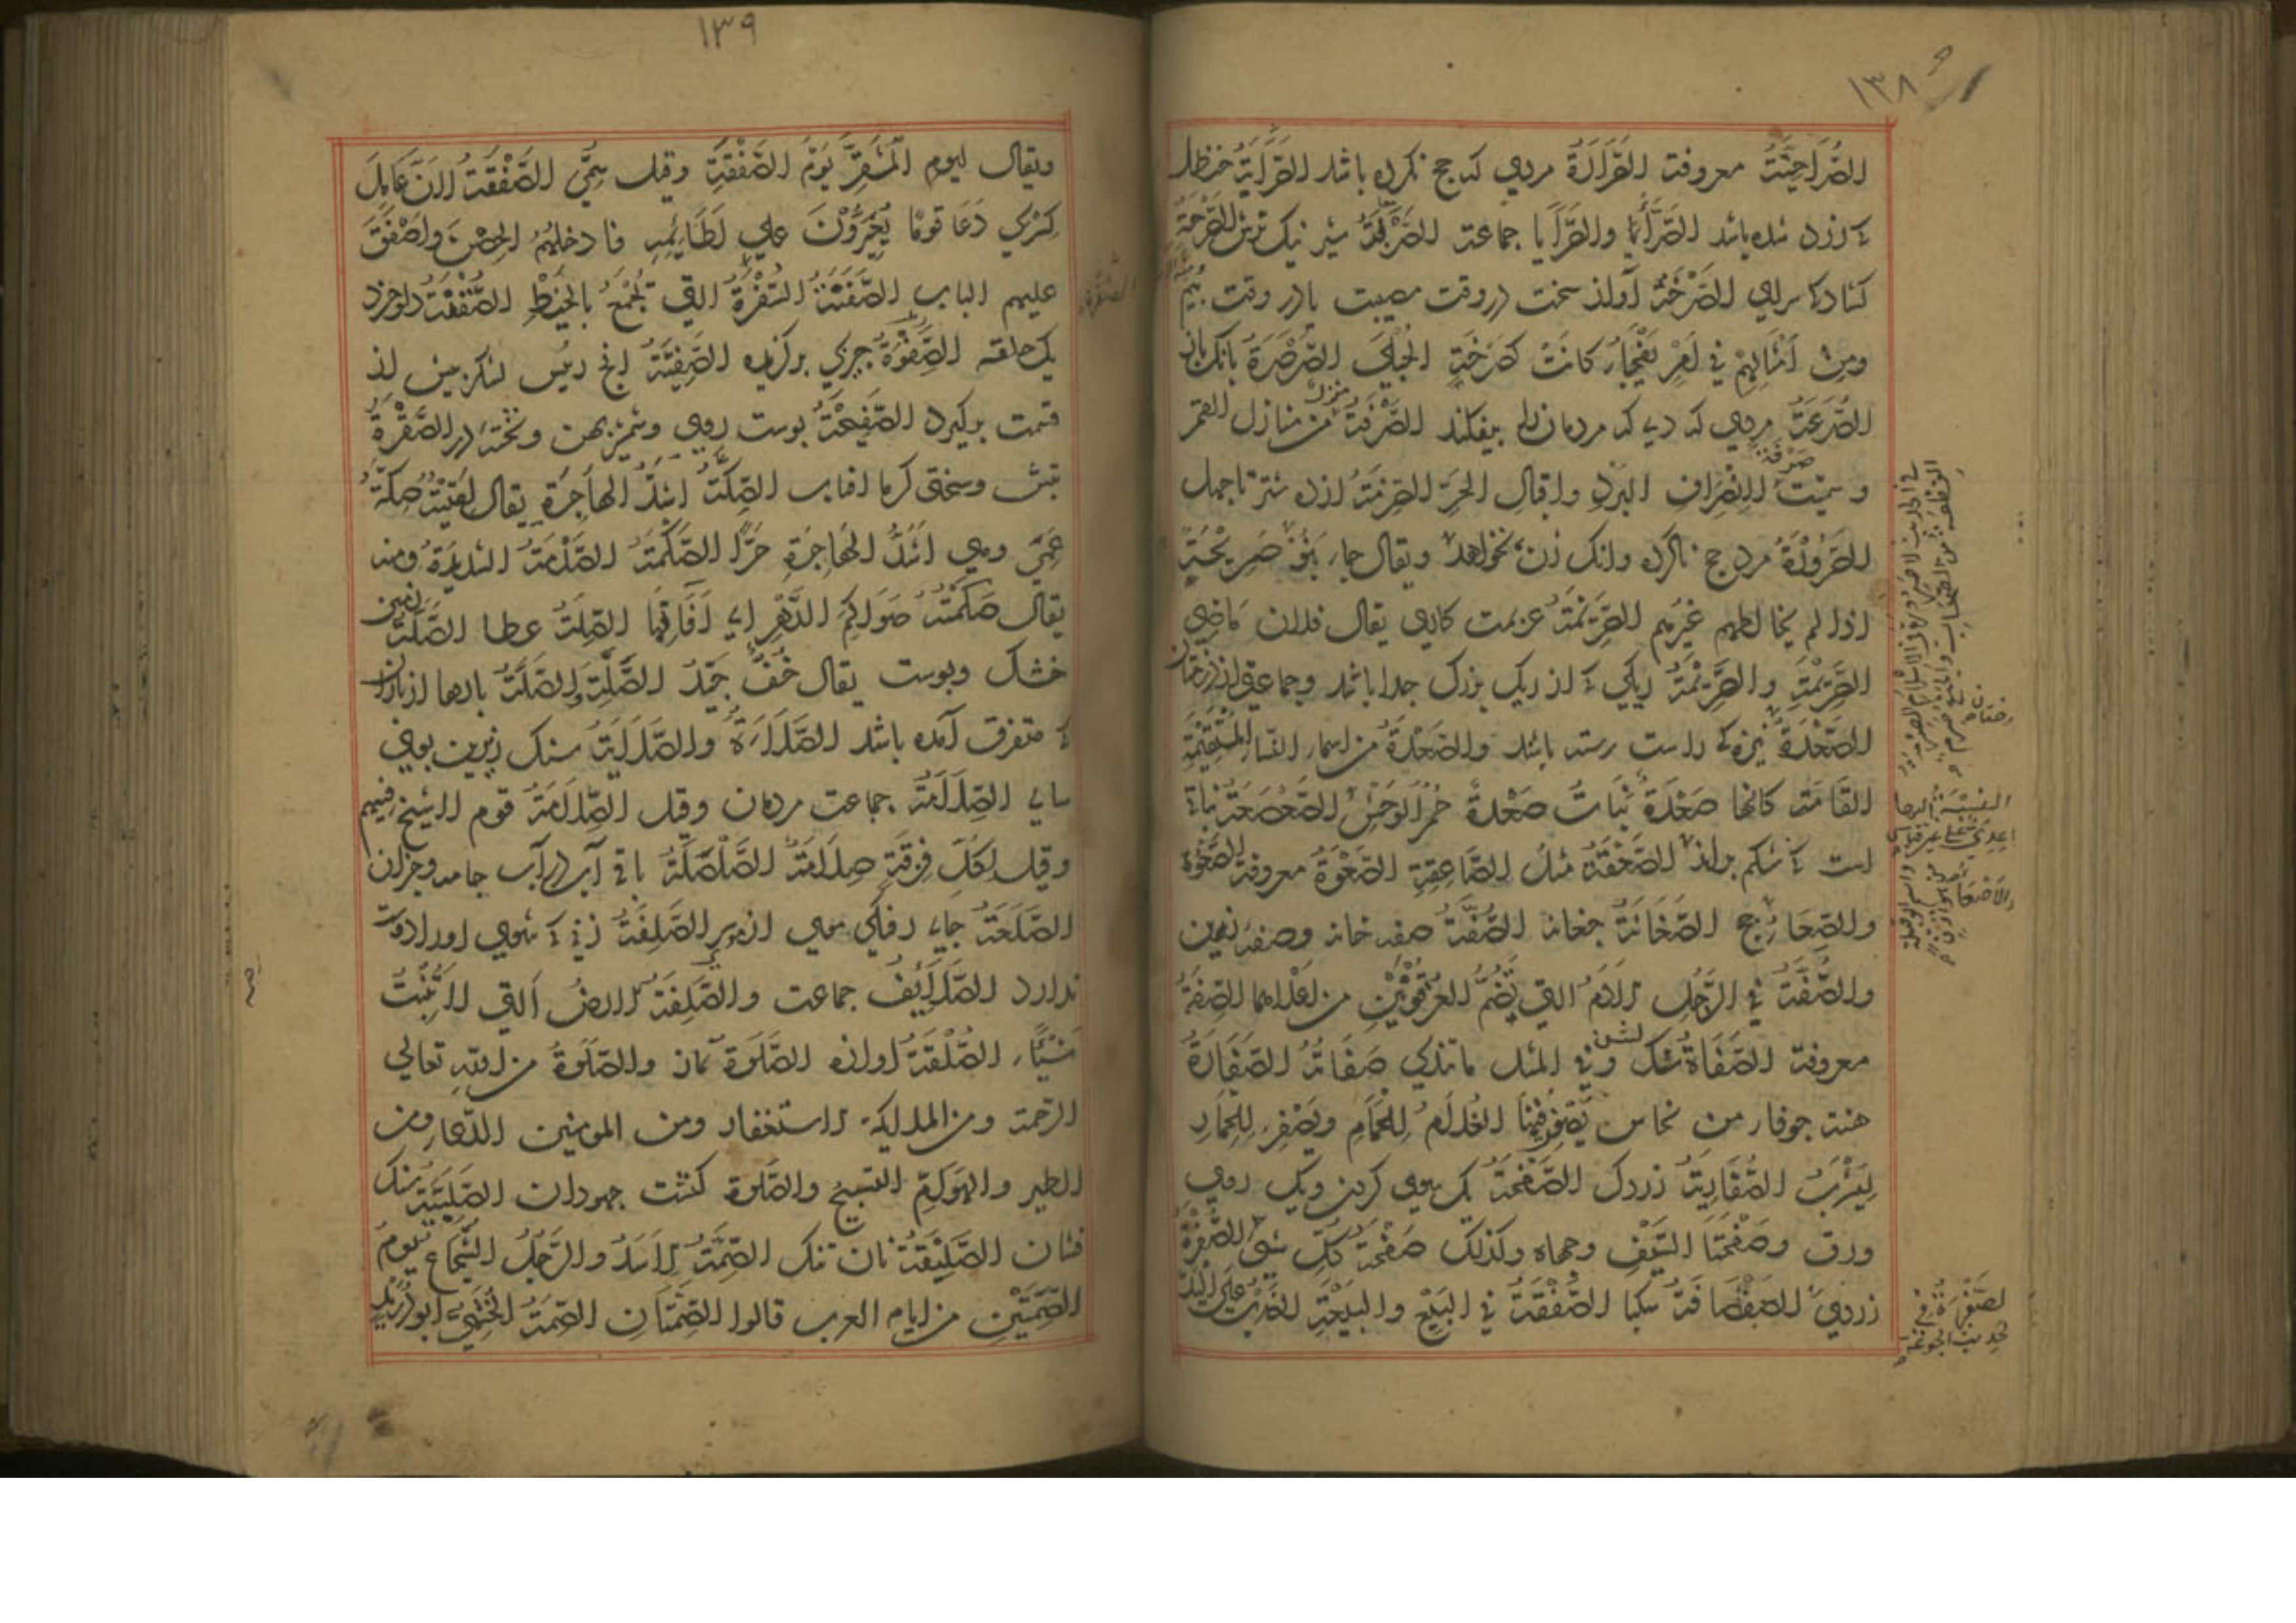 ١٣٨
الصراحية معروفة الصرارة مردي كه حج نكرده باشد الصراية حنظل
كه زرد شده باشد الصرايا والصرايا جماعت الصربة شير نيك ترش الصرحة
كشادكا سراي الصرخة آواز سخت در وقت مصيبت يا در وقت بيم
ومن امثالهم في امر يفجأ كانت كصرخة الحبلي الصرصرة بانك باز
الصرعة مردي كه مردمان را بيفكند الصرفة منزل من منازل القمر
وسميت صرفة لانصراف البرد واقبال الحر الصرمة از ده شتر تا چهل
الصرورة مرد حج ناكرده وانك زن نخواهد ويقال جاء بنو صريحة
اذا لم يخالطهم غيرهم الصريمة عزيمت كاري يقال فلان ماضي
الصريمة والصريمة ريكي كه از ريك بزرك جدا باشد وجماعتي از درختان
الصعدة نيزه كه راست رسته باشد والصعدة من اسماء النساء المستقيمة
القامة كانها صعدة نبات صعدة حمر الوحش الصعصعة نباتي
است كه شكم براند الصعقة مثل الصاعقة الصعوة معروفة الصغوة
والصغا رنج الصغانة چغانه الصفة صفه خانه وصفه زين
والصفة في الرجل الادم التي يضم العرقوتين من اعلاهما الصفة
معروفة الصفاة سنك لشن وفي المثل ما تندي صفاته الصفارة
هنة جوفاء من نحاس يصفر فيها الغلام للحمام ويصفر للحمار
ليشرب الصفارية زردك الصفحة يك سوي كردن ويك روي
ورق وصفحتا السيف وجهاه وكذلك صفحة كل شي الصفرة
زردي الصفصافة سكبا الصفقة في البيع والبيعة الضرب علي اليد
١٣٩
ويقال ليوم المشقر يوم الصفقة وقيل سمي الصفقة لان عامل
كسري دعا قوما يغيرون علي لطائمه فادخلهم الحصن واصفق
عليهم الباب الصفنة السفرة التي تجمع بالخيط الصفقة
يك حلقه الصفوة چيزي بركزيده الصفية انچ رئيس لشكر پيش از
قسمت بركيرد الصفيحة پوست روي وشمشير پهن وتخته در الصقرة
تبش وسختي كرما افتاب الصكة اشد الهاجرة يقال لقيته صكة
عمي وهي اشد الهاجرة حرا الصكمة الصدمة الشديدة ومنه
يقال صكمته صواكم الدهر اي آفاقها الصلة عطا الصلة زمين
خشك وپوست يقال خف جيد الصلة والصلة بارها از باران
كه متفرق آمده باشد الصلاءة والصلاية سنك زيرين بوي
ساي الصلامة جماعت مردمان وقيل الصلامة قوم
وقيل لكل فرقة صلامة الصلصلة باقي آب در آب جامه وجزان
الصلعة جاي رفتكي موي از سر الصلفة زني كه شوي او را دوست
ندارد الصلايف جماعت والصلفة الارض التي لا تنبت
شيئا الصلقة آوازه الصلوة نماز والصلوة من الله تعالي
الرحمة ومن الملايكة الاستغفار ومن المومنين الدعاء ومن
الطير والهوام التسبيح والصلوة كنشت جهودان الصلبية سنك
فسان الصليقة نان تنك الصمة الاسد والرجل الشجاع يوم
الصمتين من ايام العرب قالوا الصمتان الصمة الجشمي ابو دريد